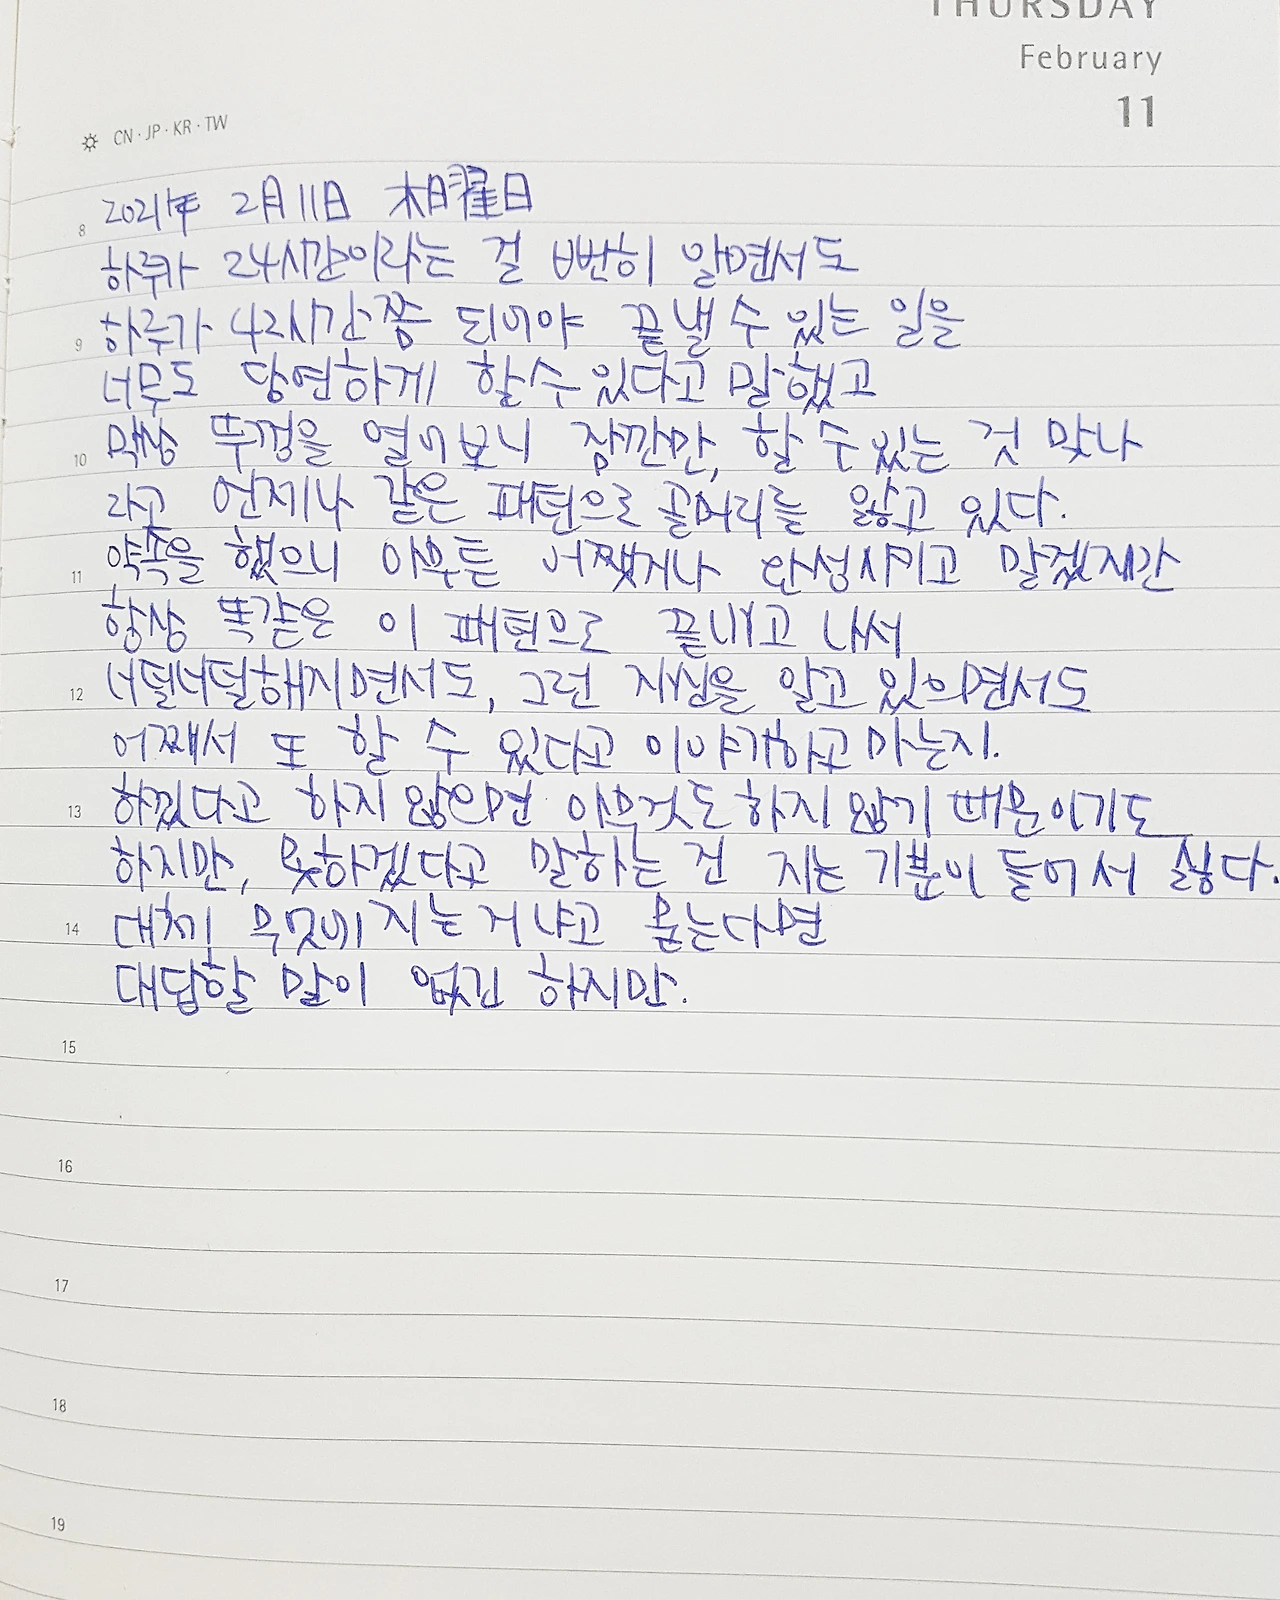 THURSDAY
February
11
CN · JP · KR · TW
2021年 2月 11日 木曜日
8
하루가 24시간이라는 걸 뻔히 알면서도
하루가 42시간쯤 되어야 끝낼 수 있는 일을
9
너무도 당연하게 할 수 있다고 말했고
막상 뚜껑을 열어보니 잠깐만, 할 수 있는 것 맞나
10
라고 언제나 같은 패턴으로 골머리를 앓고 있다.
약속을 했으니 아무튼 어쨌거나 완성시키고 말겠지만
11
항상 똑같은 이 패턴으로 끝내고 나서
너덜너덜해지면서도, 그런 자신을 알고 있으면서도
12
어째서 또 할 수 있다고 이야기하고 마는지.
하겠다고 하지 않으면 아무것도 하지 않기 때문이기도
13
하지만, 못하겠다고 말하는 건 지는 기분이 들어서 싫다.
대체 무엇에 지는 거냐고 묻는다면
14
대답할 말이 없긴 하지만.
15
16
17
18
19